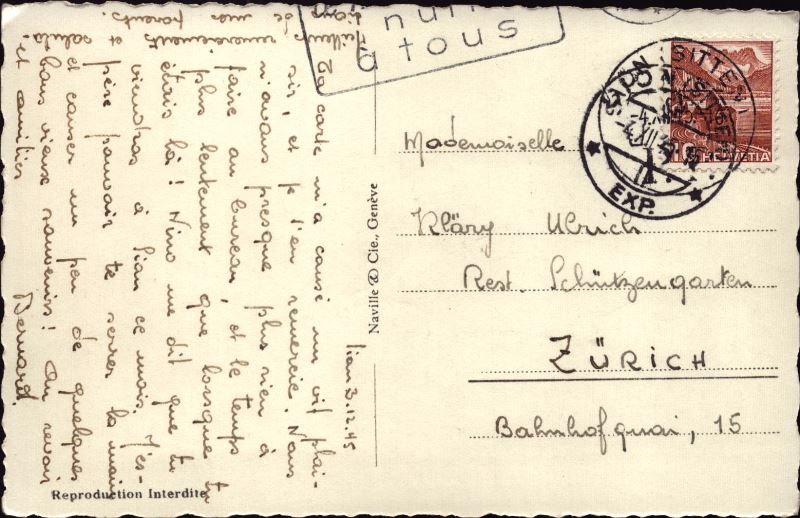 Sion 3.12.45
Ta carte m'a causé un vif plai-
sir, et je t'en remercie. Nous
n'avons presque plus rien à
faire au bureau, et le temps
plus lentement que lorsque tu
étais là! Nino me dit que tu
viendras à Sion ce mois. J'es-
père pouvoir te serrer la main
et causer un peu de quelques
bons vieux souvenirs! Au revoir
et amitiés
Bernard.
meilleurs remerciements et saluta-
de mes parents.
Naville & Cie., Genève
Reproduction Interdite
nui
à tous
SION SITTEN
-4.XII.45
EXP.
HELVETIA
Mademoiselle
Kläry Ulrich
Rest. Schützengarten
ZÜRICH
Bahnhofquai, 15